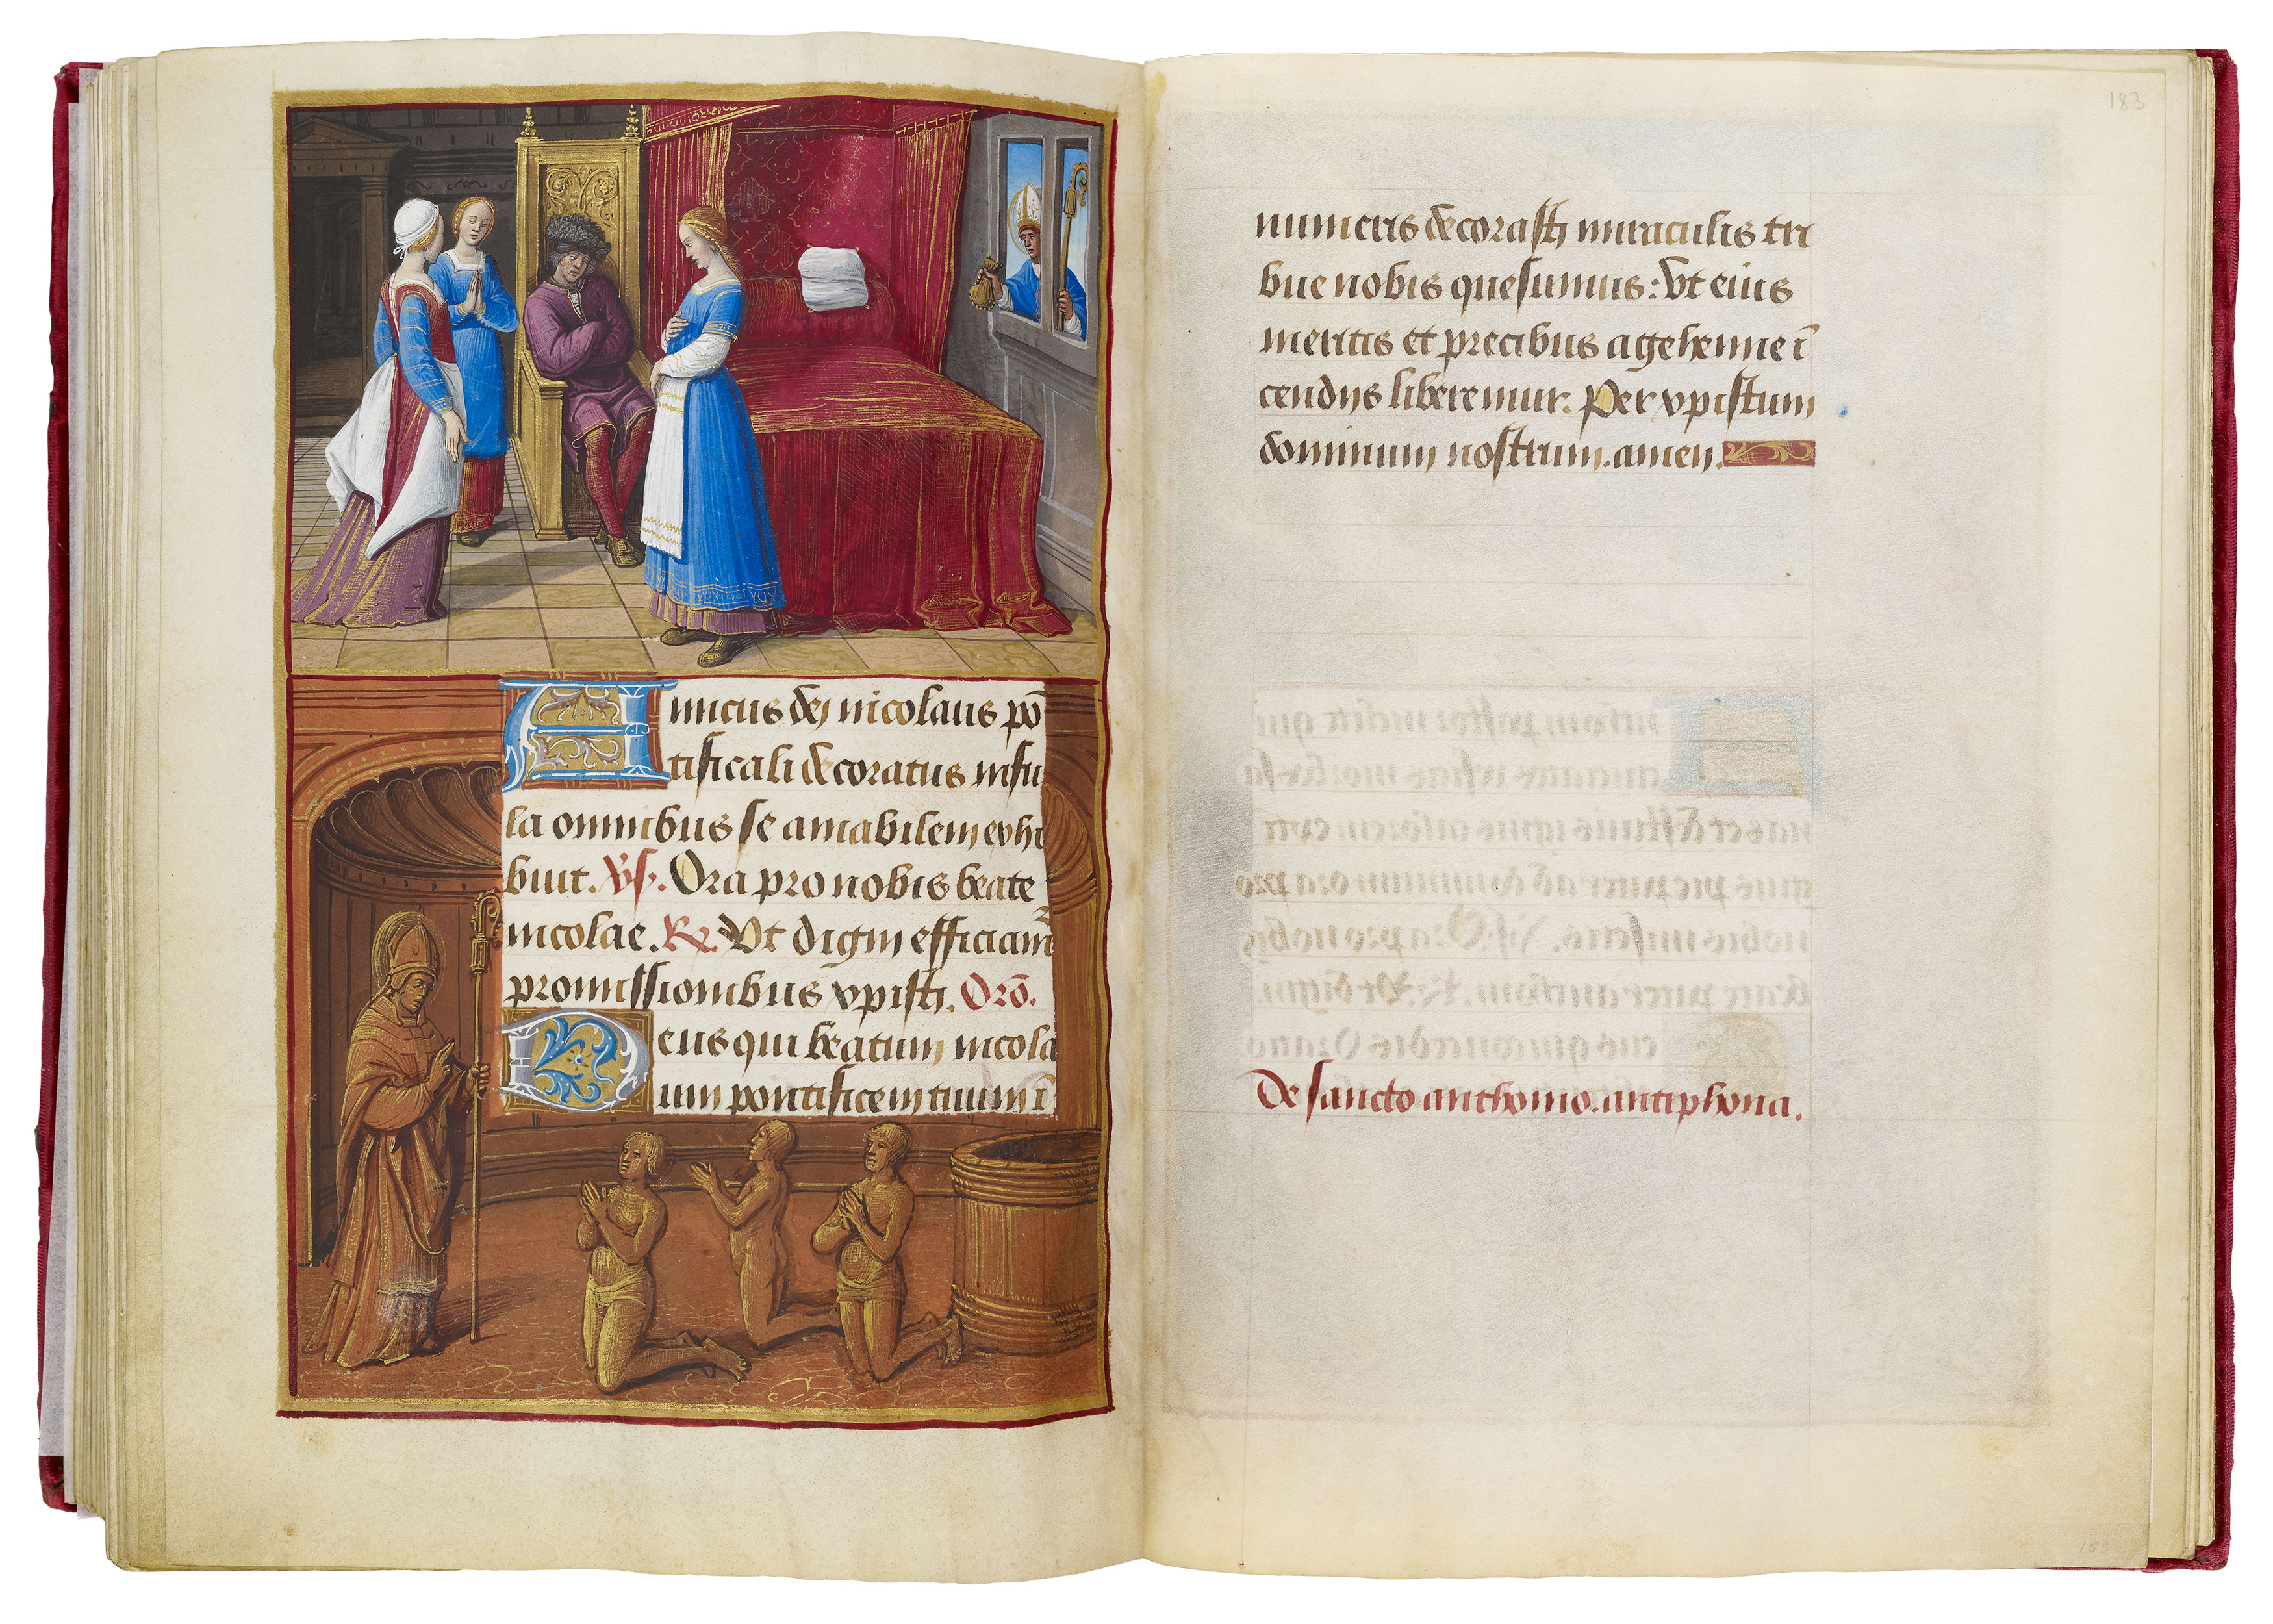 Amicus dei nicolaus põ
tificali decoratus infu
la omnibus se amabilem exhi
buit. Vs. Ora pro nobis beate
nicolae. Rx. Vt digni efficiam̃
promissionibus xpisti. Orõ.
Deus qui beatum nicola
um pontificem tuum ĩ
183
numeris decorasti miraculis tri
bue nobis quesumus: Vt eius
meritis et precibus a gehenne ĩ
cendijs liberemur. Per xpistum
dominum nostrum. amen.
De sancto anthonio. antiphona.
183